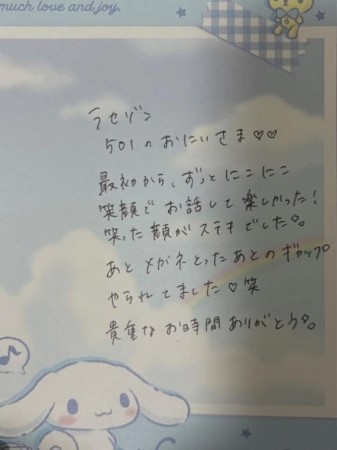 much love and joy.
ラセゾン
501のおにいさま♡♡
最初から、ずっとにこにこ
笑顔でお話して楽しかった!
笑った顔がステキでした。
あとメガネとったあとのギャップ
やられてました♡笑
貴重なお時間ありがとう。